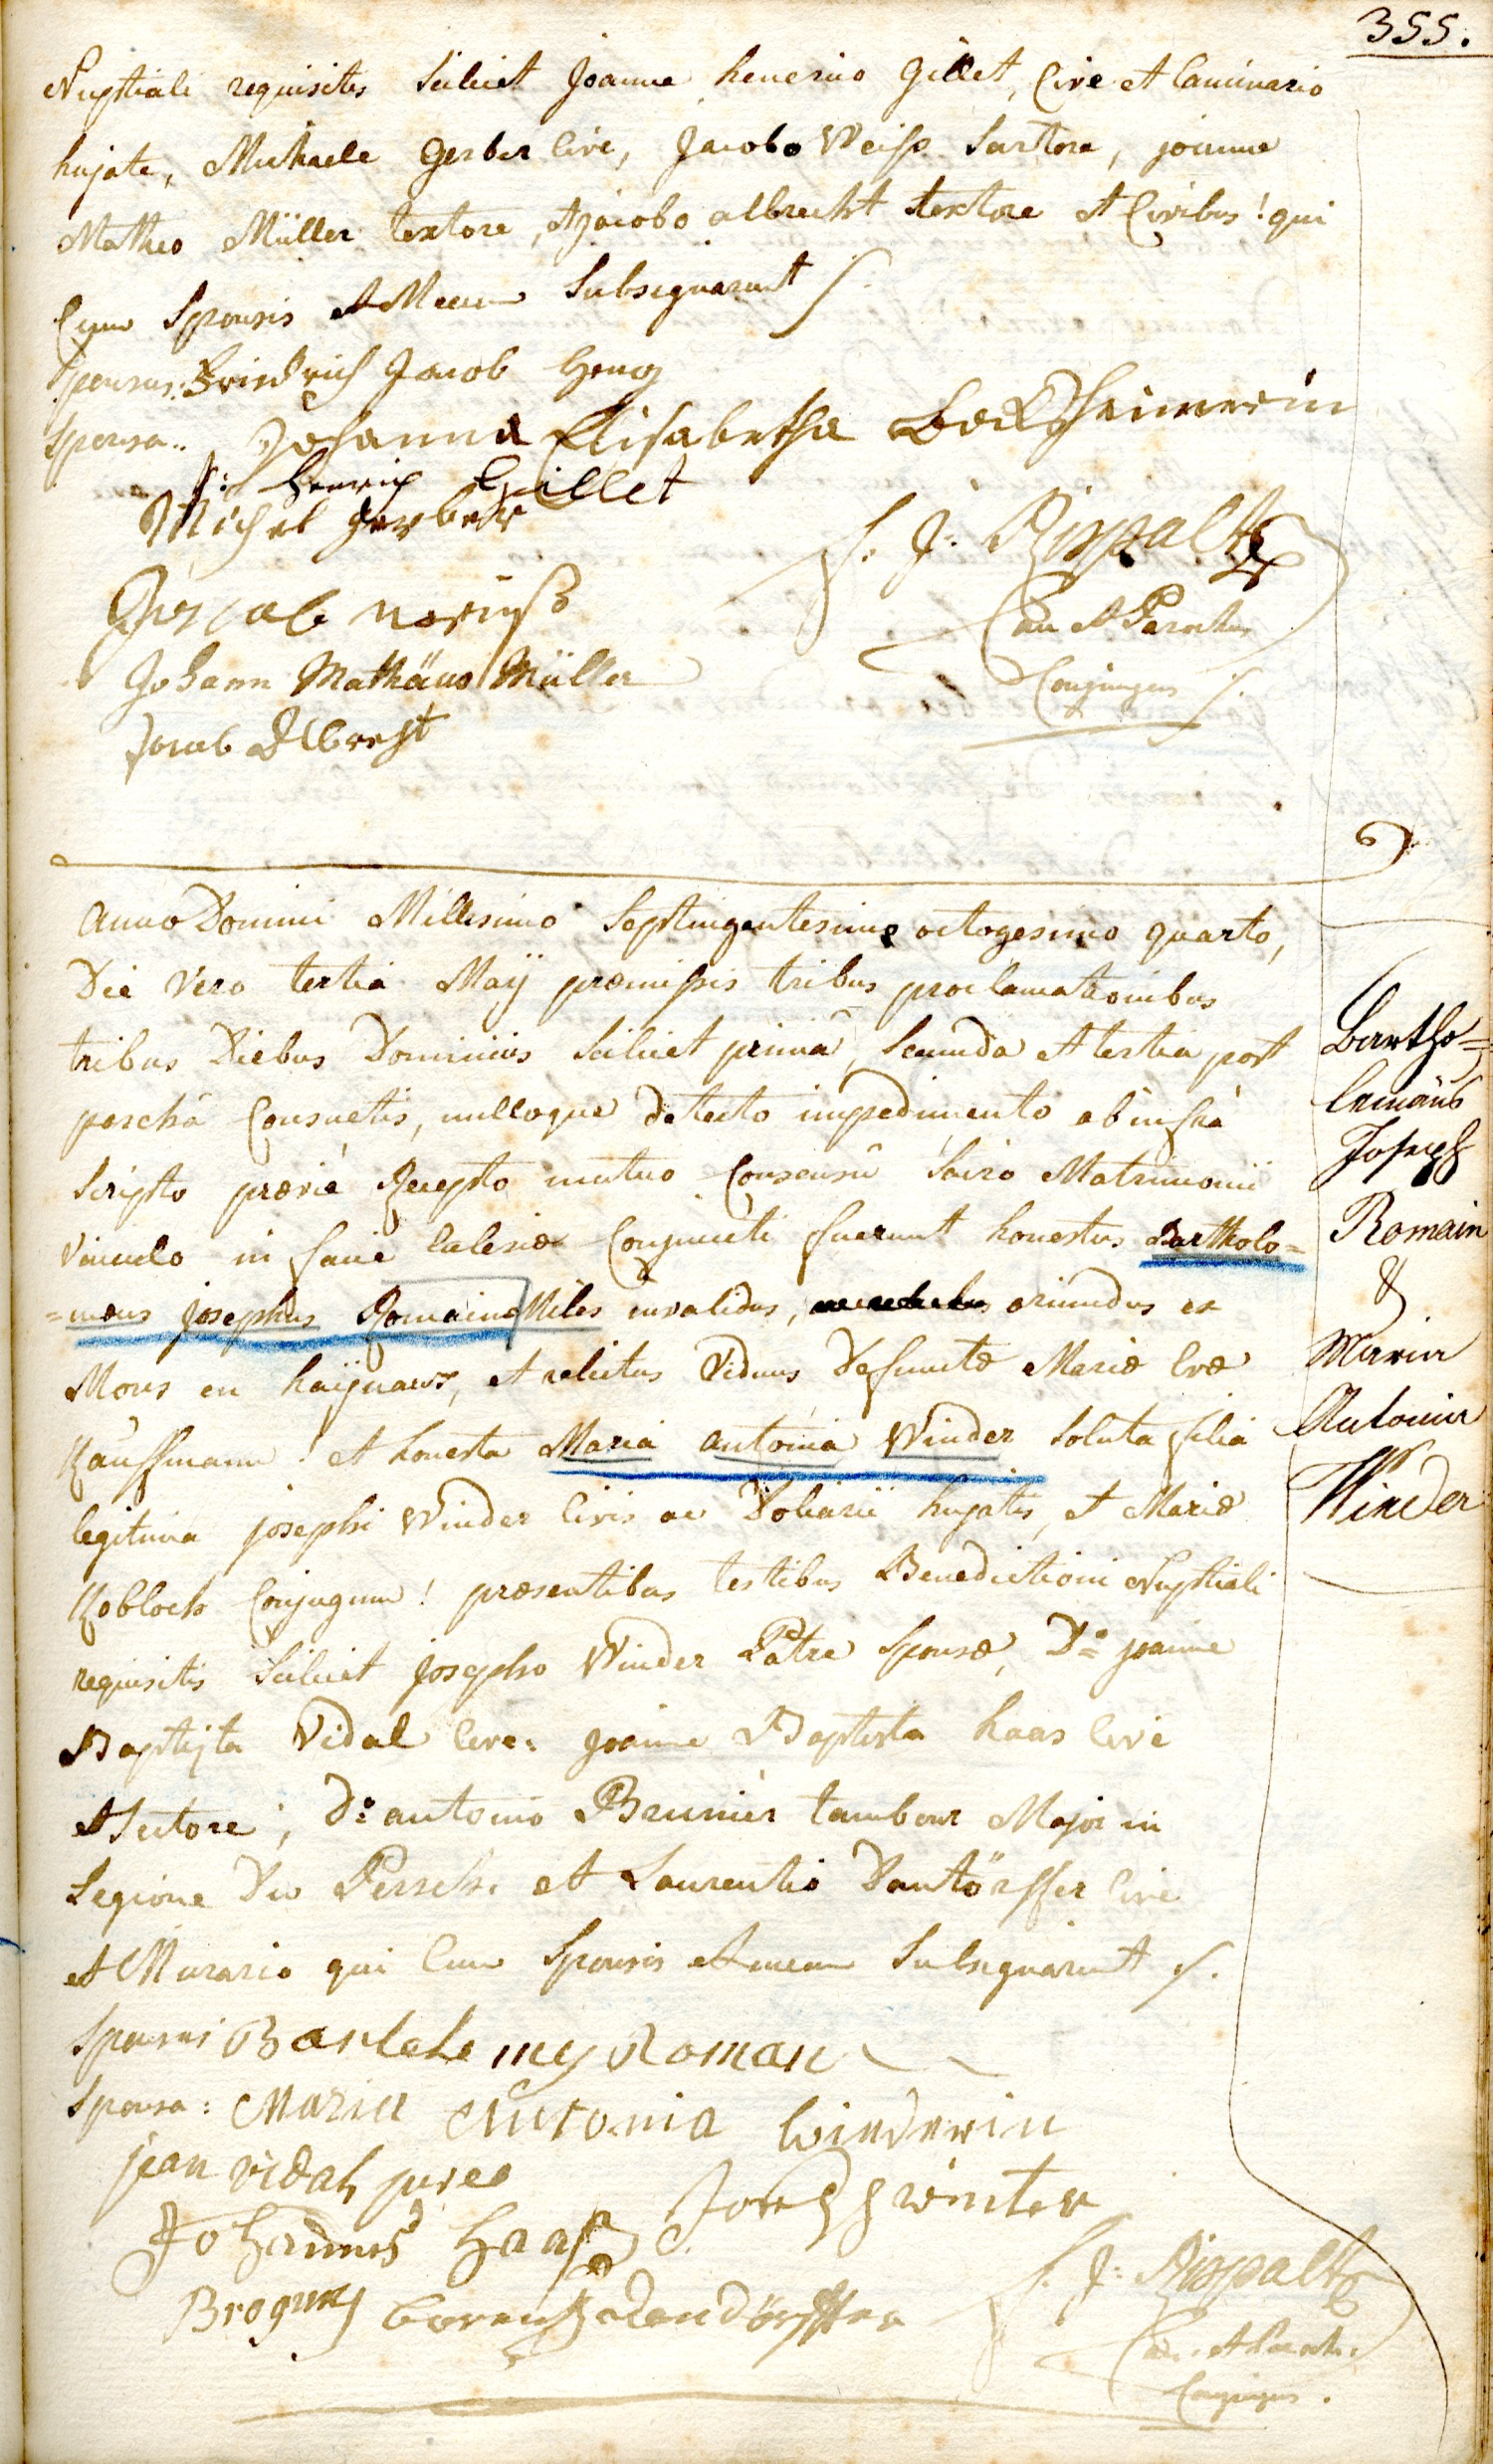 355.
Nuptiali requisitis scilicet Joanne henerico Gillet, Cive et Caminario
hujate, Michaele Gerber Cive, Jacobo Weiss Sartore, joanne
Matheo Müller textore, et jacobo albrecht textore et Civibus! qui
Cum Sponsis et Mecum Subsignarunt
Sponsus: Friedrich Jacob
Sponsa: Johanna Elisabetha
Henrich Gillet
Michel Gerber
S. J. Rispalt
Jacob
Can et Parochus
Johann Mathäus Müller
Conjungens
Jacob Albrecht
Anno Domini Millesimo Septingentesimo octogesimo quarto,
Die Vero tertia Maij præmissis tribus proclamationibus
tribus Diebus Dominicis scilicet primâ, Secunda et tertia post
pascha Consuetis, nulloque detecto impedimento ab infrà
Scripto prævié Recepto mutuo Consensû Sacro Matrimonii
Vinculo in facie Eclesiæ Conjuncti fuerunt honestus Bartholo=
=mæus josephus Romain Miles invalidus, oriundus ex
Mons en haijnaux, et relictus Viduus Defunctæ Mariæ Evæ
Kauffmann! et honesta Maria antonia Winder Soluta filia
legitima josephi Winder Civis ac Doliarii hujatis, et Mariæ
Kobloch Conjugum! præsentibus testibus Benedictioni Nuptiali
requisitis Scilicet josepho Winder Patre Sponsæ, Do joanne
Baptista Vidal Cive: joanne Baptista haas Cive
et Sutore; Do antonio Brunier tambour Major in
Legione Du Perche. et Laurentio Dantörffer Cive
et Murario qui Cum Sponsis et mecum Subsignarunt
Bartho=
lemäus
Joseph
Romain
&
Maria
Antonia
Winder
Sponsus Bartelemy Roman
Sponsa: Maria Antonia Winderin
jean vidal
Joseph winter
Johannes Haas
S. J. Rispalt
Lorentz Dandörffer
Can. et Paroch.
Conjungens.